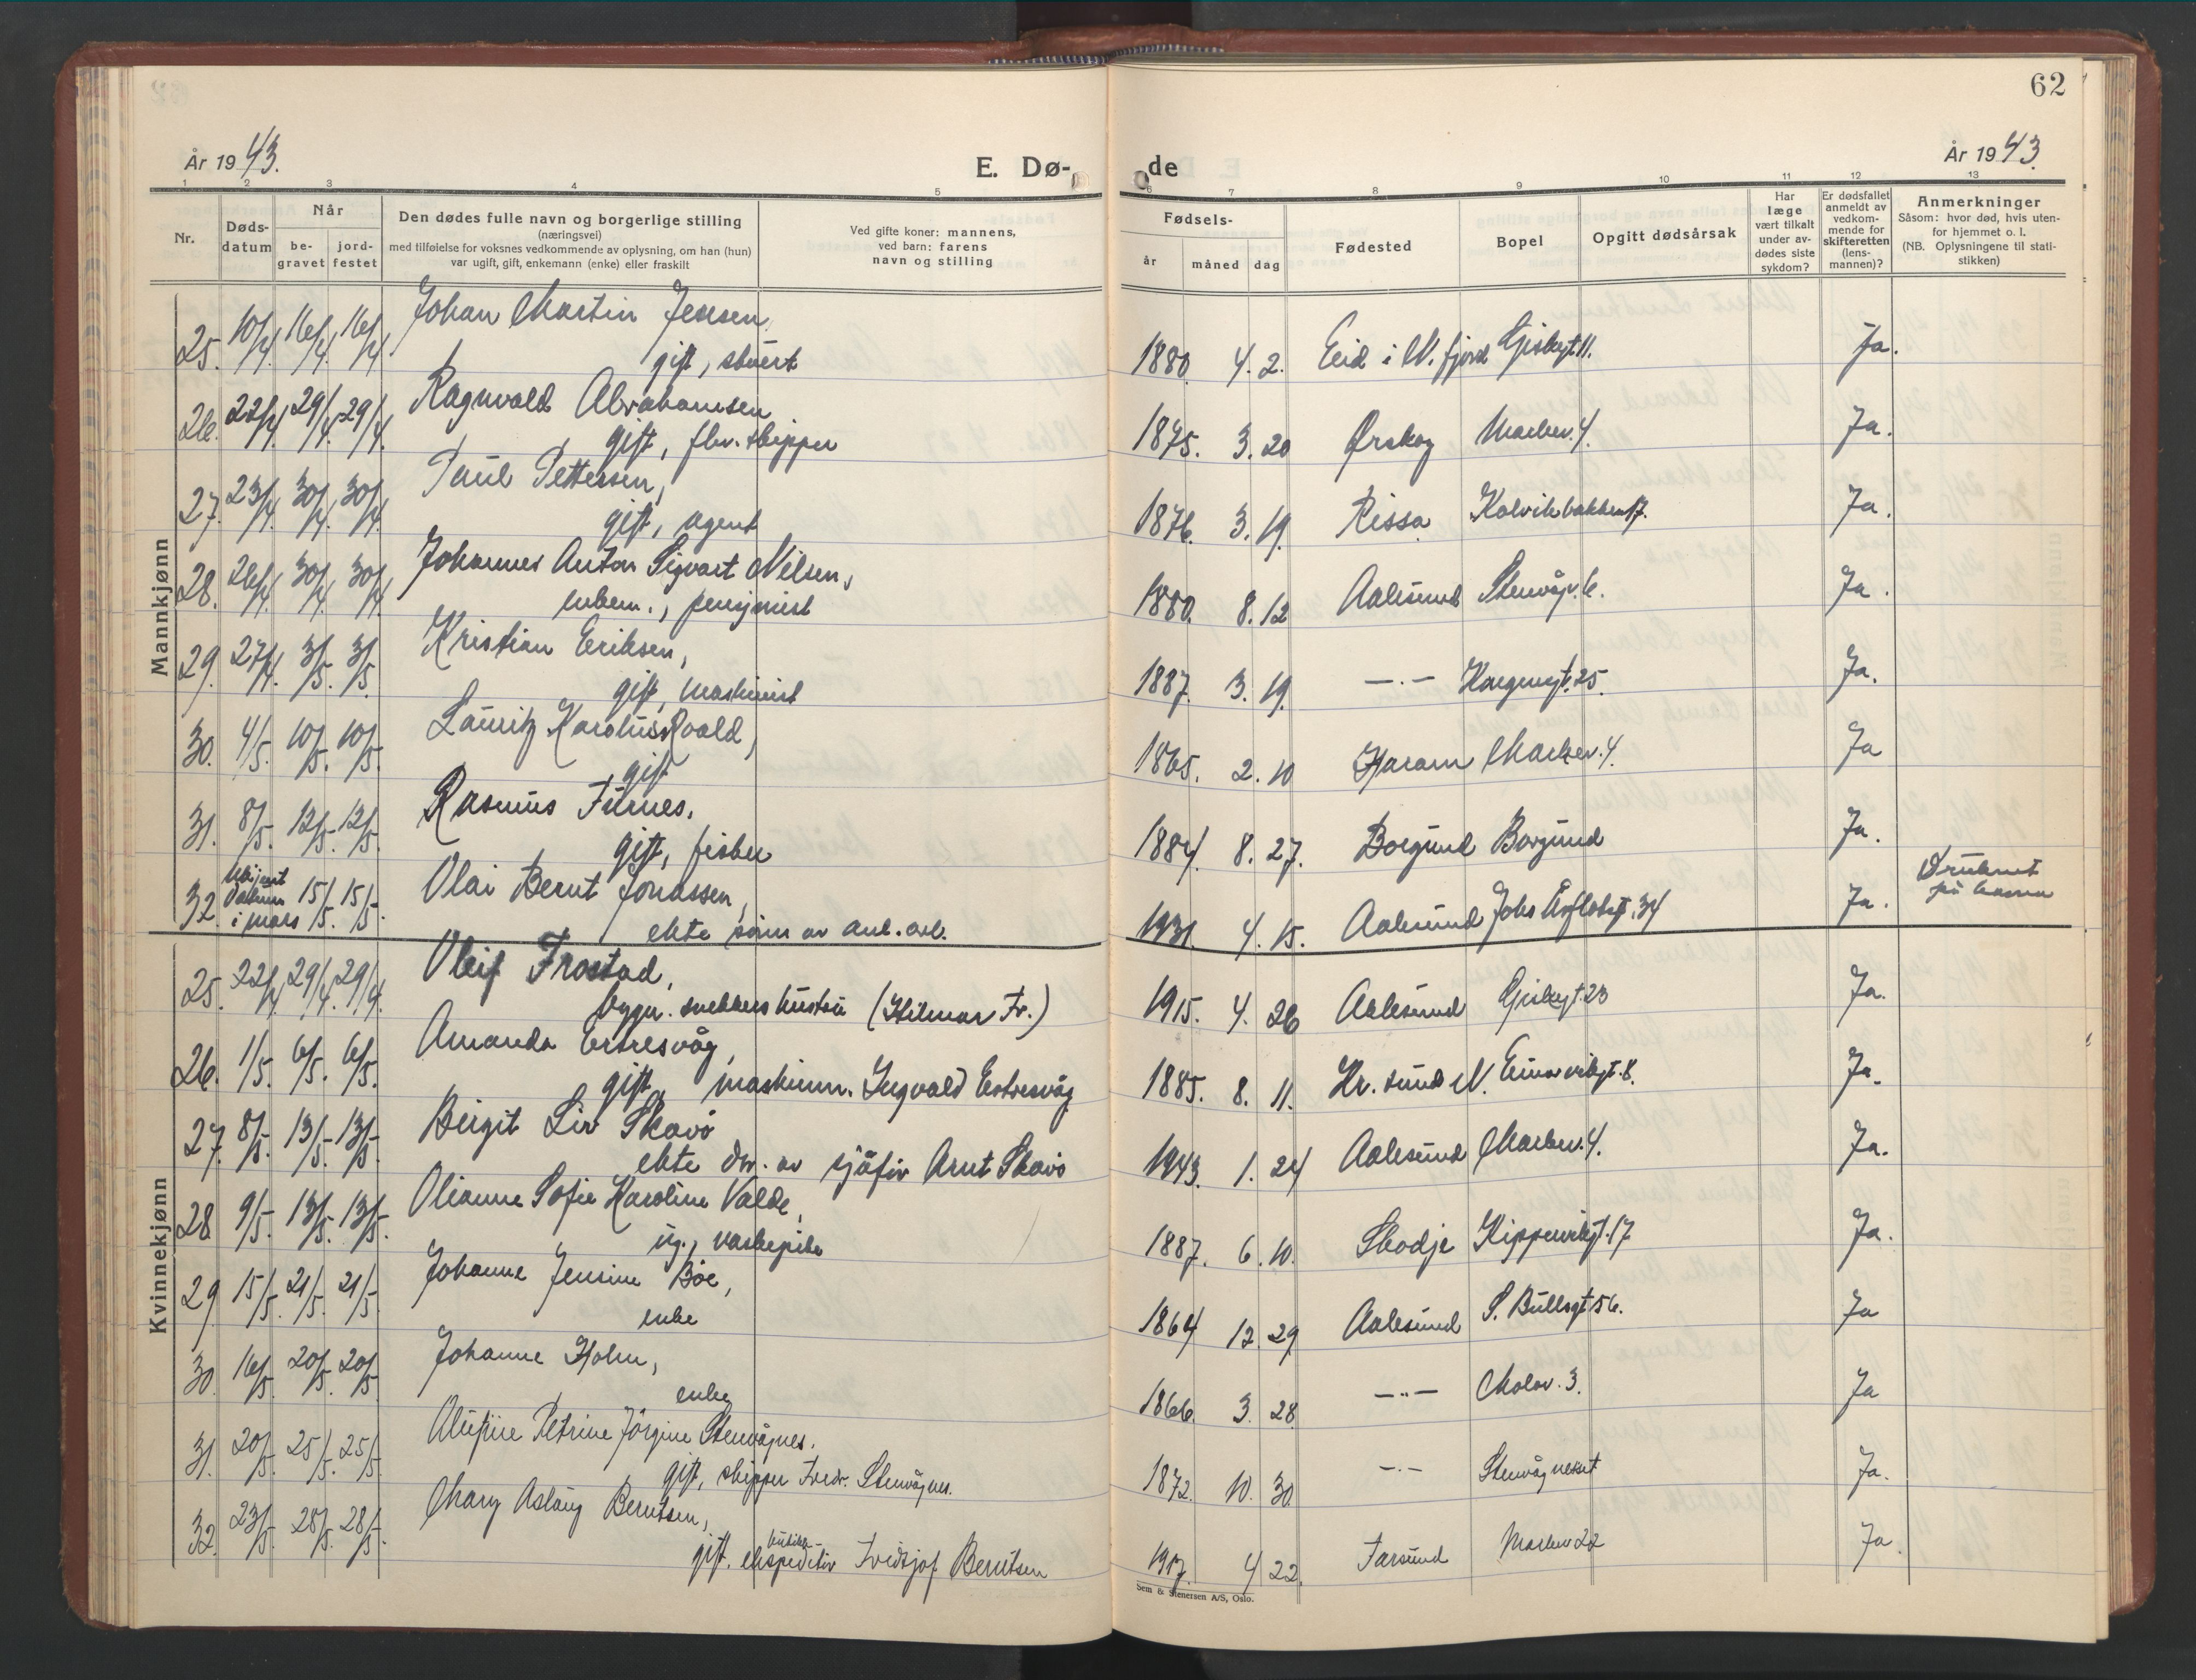 62
År 1943.
E. Dø-
de
År 1943.
1 2 3 4 5 6 7 8 9 10 11 12 13
Nr.
Døds-
datum
Når
be-
gravet
jord-
festet
Den dødes fulle navn og borgerlige stilling
(næringsvei)
med tilføielse for voksnes vedkommende av oplysning, om han (hun)
var ugift, gift, enkemann (enke) eller fraskilt
Ved gifte koner: mannens,
ved barn: farens
navn og stilling
Fødsels-
år måned dag
Fødested
Bopel
Opgitt dødsårsak
Har
læge
vært tilkalt
under av-
dødes siste
sykdom?
Er dødsfallet
anmeldt av
vedkom-
mende for
skifteretten
(lens-
mannen)?
Anmerkninger
Såsom: hvor død, hvis uten-
for hjemmet o. l.
(NB. Oplysningene til stati-
stikken)
Mannkjønn
25. 10/4. 16/4. 16/4. Johan Martin Jensen,
gift, stuert
1880. 4. 2. Eid i N.fjord Giskegt. 11. Ja.
26. 22/4. 29/4. 29/4. Ragnvald Abrahamsen
gift, fhv. skipper
1875. 3. 20 Ørskog Markev. 4. Ja.
27. 23/4. 30/4. 30/4. Paul Pettersen,
gift, agent
1876. 3. 19. Rissa Kolvikbakken 17. Ja.
28. 26/4. 30/4. 30/4. Johannes Anton Sigvart Nilsen,
enkem., pensjonist
1880. 8. 12 Aalesund Stenvågv. 6. Ja.
29. 27/4. 3/5. 3/5. Kristian Eriksen,
gift, maskinist
1887. 3. 19. —.— 25. Ja.
30. 4/5. 10/5. 10/5. Lauritz Karolus Roald,
gift
1865. 2. 10 Haram Markev. 4. Ja
31. 8/5. 12/5. 12/5. Rasmus Furnes.
gift, fisker
1884 8. 27. Borgund Borgund Ja.
32. Ukjent
datum
i mars 15/5. 15/5. Olai Bernt Jonassen,
ekte sønn av anl. arb.
1931. 4. 15. Aalesund Johs Aafloteg. 34 Ja. Druknet
på havna
Kvinnekjønn
25. 22/4. 29/4. 29/4. Oleif Frostad,
bygn. snekkers hustru (Hilmar Fr.)
1915. 4. 26 Aalesund Giskegt. 23 Ja.
26. 1/5. 6/5. 6/5. Amanda Ertresvåg,
gift, maskinm. Ingvald Ertresvåg
1885. 8. 11. Kr. sund N. Einarvikgt. 8. Ja.
27. 8/5. 13/5. 13/5. Birgit Liv Skavø
ekte dtr. av sjåfør Arnt Skavø
1943. 1. 24 Aalesund Markev. 4. Ja.
28 9/5. 13/5. 13/5. Olianne Sofie Karoline Valde,
ug., vaskepike
1887. 6. 10. Skodje Kippervikgt. 17 Ja.
29 15/5. 21/5. 21/5. Johanne Jensine Bøe,
enke
1864 12. 29. Aalesund S. Bullsgt 56. Ja
30. 16/5. 20/5. 20/5. Johanne Holm,
enke
1866. 3. 28. —..— Molov. 3. Ja
31. 20/5. 25/5. 25/5. Petrine Jørgine Stenvågnes.
gift, skipper Fredr. Stenvågnes.
1872. 10. 30. —.— Stenvågneset Ja.
32. 23/5. 28/5. 28/5. Mary Aslaug Berntsen,
gift. butikk-
ekspeditør Fridtjof Berntsen
1917. 4 22. Farsund Markev 22 Ja.
Sem & Stenersen A/S, Oslo.